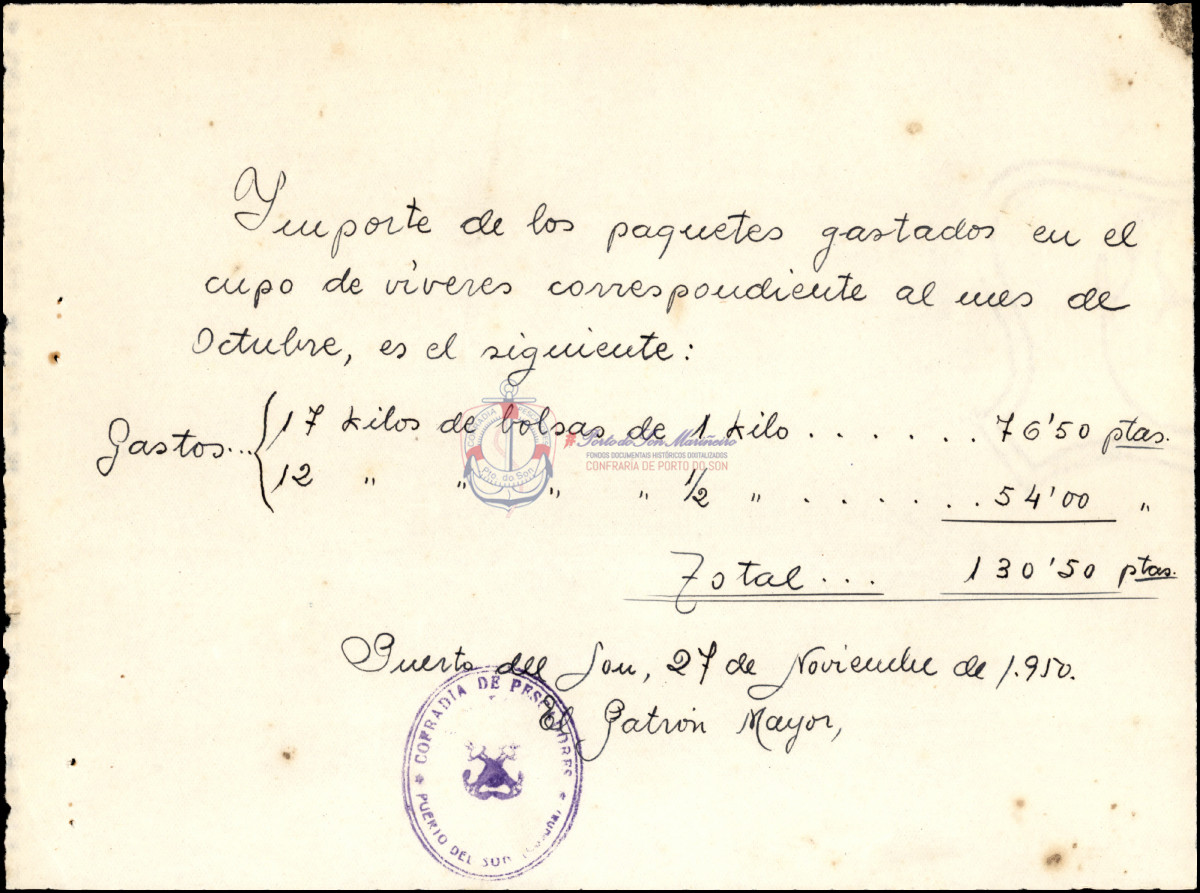 Ymporte de los paquetes gastados en el
cupo de víveres correspondiente al mes de
Octubre, es el siguiente:
Gastos... { 17 kilos de bolsas de 1 kilo . . . . . . . 76'50 ptas.
12 " " " " 1/2 " . . . . . . . . 54'00 "
Total ... 130'50 ptas.
Puerto del Son, 27 de Noviembre de 1.950.
El Patrón Mayor,
* COFRADIA DE PESCADORES *
PUERTO DEL SON
COFRADIA
Pto. do Son
# Porto do Son Mariñeiro
FONDOS DOCUMENTAIS HISTÓRICOS DIXITALIZADOS
CONFRARÍA DE PORTO DO SON